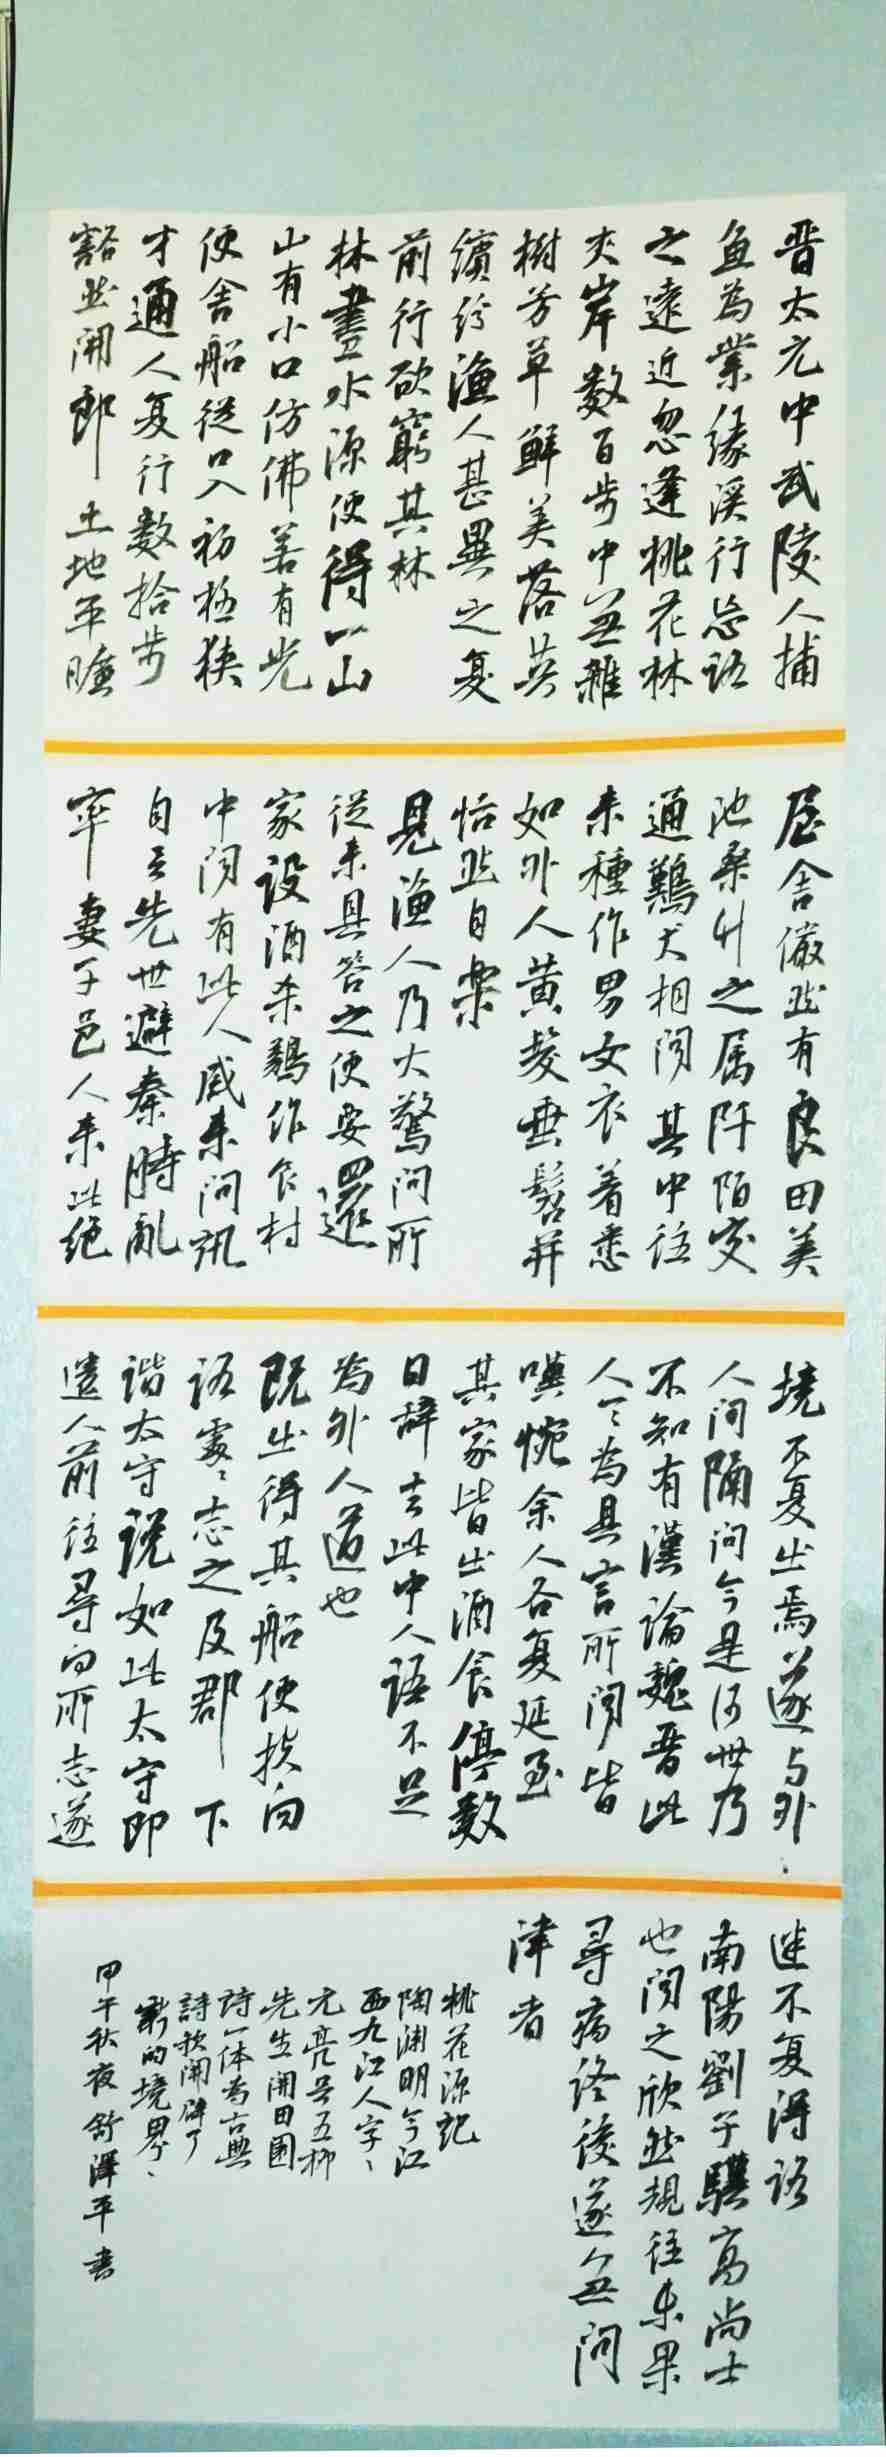 晋太元中武陵人捕
鱼为業缘溪行忘路
之遠近忽逢桃花林
夹岸数百步中无雜
樹芳草鲜美落英
繽纷渔人甚異之复
前行欲窮其林
林盡水源便得一山
山有小口仿佛若有光
便舍船從口入初极狭
才通人复行数拾步
豁然開郎土地平曠
屋舍儼然有良田美
池桑竹之属阡陌交
通鷄犬相闻其中往
来種作男女衣着悉
如外人黄髮垂髫并
怡然自樂
見渔人乃大驚问所
從来具答之便要還
家設酒杀鷄作食村
中闻有此人咸来问訊
自云先世避秦時亂
率妻子邑人来此绝
境不复出焉遂与外
人间隔问今是何世乃
不知有漢論魏晋此
人一一为具言所闻皆
嘆惋余人各复延至
其家皆出酒食停数
日辞去此中人語不足
為外人道也
既出得其船便扶向
路處々志之及郡下
詣太守説如此太守即
遣人前往尋向所志遂
迷不复得路
南陽劉子驥高尚士
也闻之欣然規往未果
尋病终後遂无问
津者
桃花源記
陶渊明今江
西九江人字、
元亮号五柳
先生開田園
诗一体為古典
詩歌開闢了
新的境界、
甲午秋夜舒澤平书